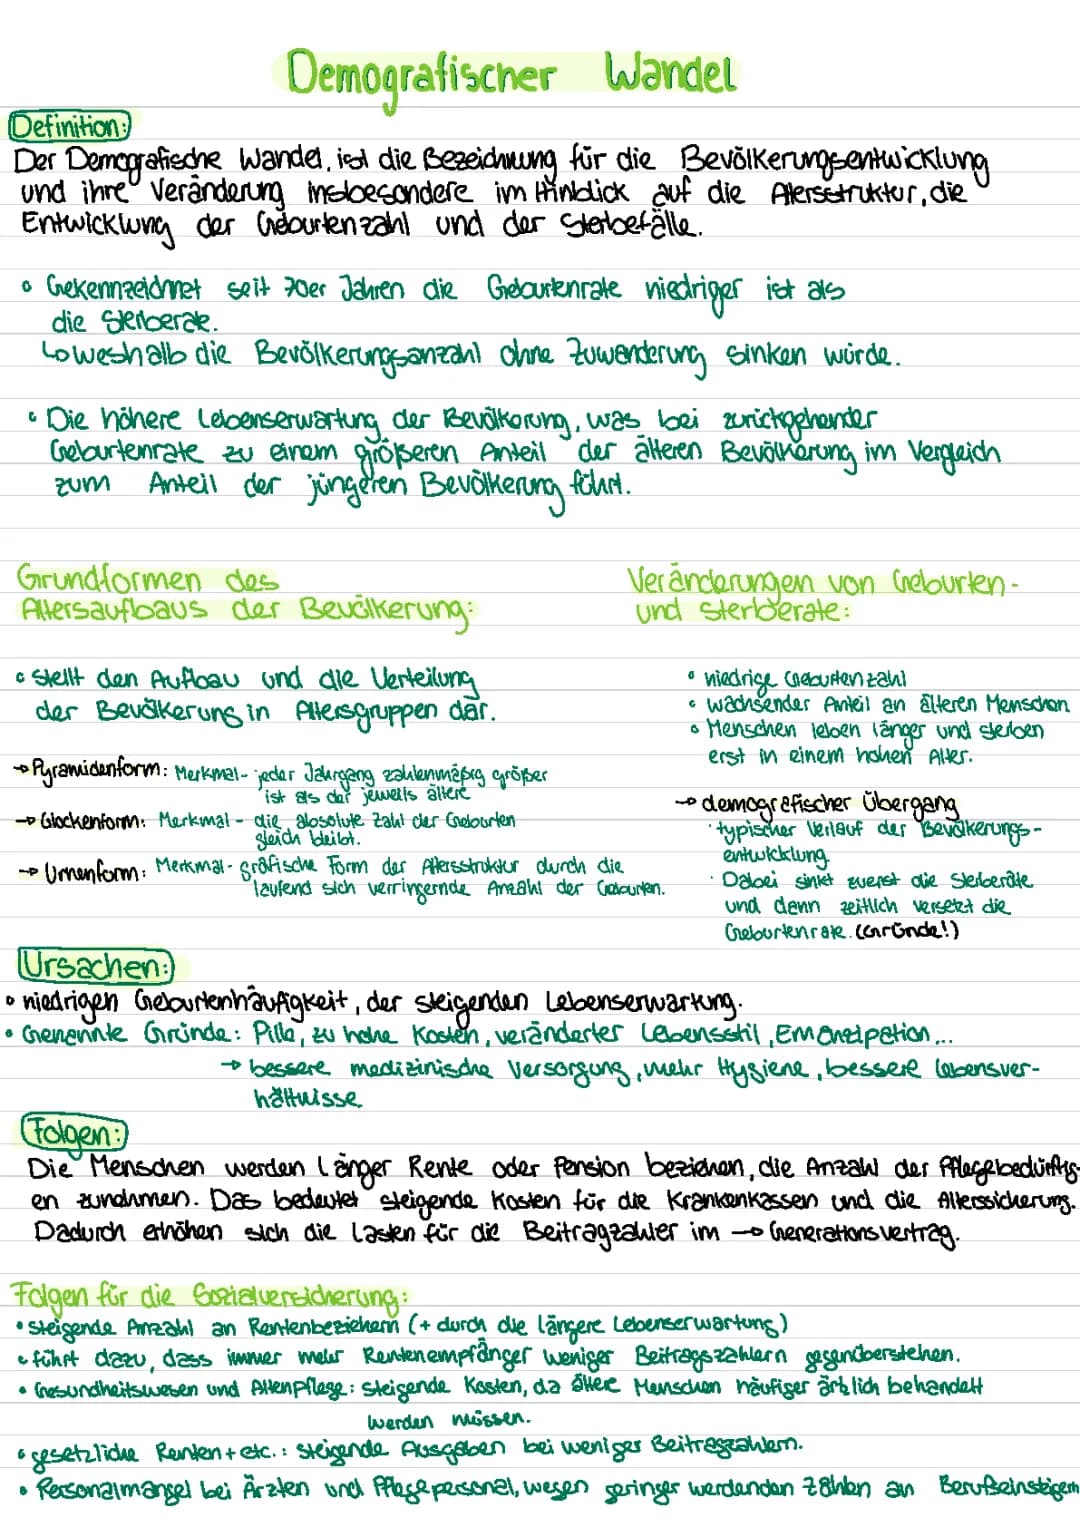 Demografischer Wandel
Definition:
Der Demografische Wandel, ist die Bezeichnung für die Bevölkerungsentwicklung
und ihre Veränderung insbesondere im Hinblick auf die Alersstruktur, die
Entwicklung der Geburtenzahl und der Sterbefälle.
• Gekennzeichnet seit 70er Jahren die Geburtenrate niedriger ist als
die Sterberate.
↳ weshalb die Bevölkerungsanzahl ohne Zuwanderung sinken würde.
• Die höhere Lebenserwartung der Bevölkerung, was bei zurückgehender
Geburtenrate zu einem größeren Anteil der älteren Bevölkerung im Vergleich
zum Anteil der jüngeren Bevölkerung führt.
Grundformen des
Altersaufbaus der Bevölkerung:
• stellt den Aufbau und die Verteilung
der Bevölkerung in Altersgruppen dar.
→ Pyramidenform: Merkmal- jeder Jahrgang zahlenmäßig größer
ist als der jeweils ältere
→ Glockenform: Merkmal - die absolute Zahl der Geburten
gleich bleibt.
→ Urnenform: Merkmal- grafische Form der Altersstruktur durch die
laufend sich verringernde Anzahl der Geburten.
Veränderungen von Geburten-
und Sterberate:
• niedrige Geburtenzahl
• wachsender Anteil an älteren Menschen
• Menschen leben länger und sterben
erst in einem hohen Alter.
→ demografischer Übergang
· typischer Verlauf der Bevölkerungs-
entwicklung
· Dabei sinkt zuerst die Sterberate
und dann zeitlich versetzt die
Geburtenrate. (Gründe!)
Ursachen:
• niedrigen Geburtenhäufigkeit, der steigenden Lebenserwartung.
• Genannte Gründe: Pille, zu hohe Kosten, veränderter Lebensstil, Emanzipation...
→ bessere medizinische Versorgung, mehr Hygiene, bessere Lebensver-
hältnisse
Folgen:
Die Menschen werden länger Rente oder Pension beziehen, die Anzahl der Pflegebedürftig-
en zunehmen. Das bedeutet steigende Kosten für die Krankenkassen und die Alterssicherung.
Dadurch erhöhen sich die Lasten für die Beitragzahler im → Generationsvertrag.
Folgen für die Sozialversicherung:
• steigende Anzahl an Rentenbeziehern (+ durch die längere Lebenserwartung)
• führt dazu, dass immer mehr Rentenempfänger weniger Beitragszahlern gegenüberstehen.
• Gesundheitswesen und Altenpflege: steigende Kosten, da ältere Menschen häufiger ärtzlich behandelt
werden müssen.
• gesetzliche Renten + etc.: steigende Ausgaben bei weniger Beitragszahlern.
• Personalmangel bei Ärzten und Pflegepersonal, wegen geringer werdenden Zahlen an Berufseinsteigern